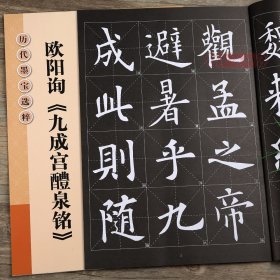 历代墨宝选粹
欧阳询《九成宫醴泉铭》
觀孟之帝
避暑乎九
成此則随